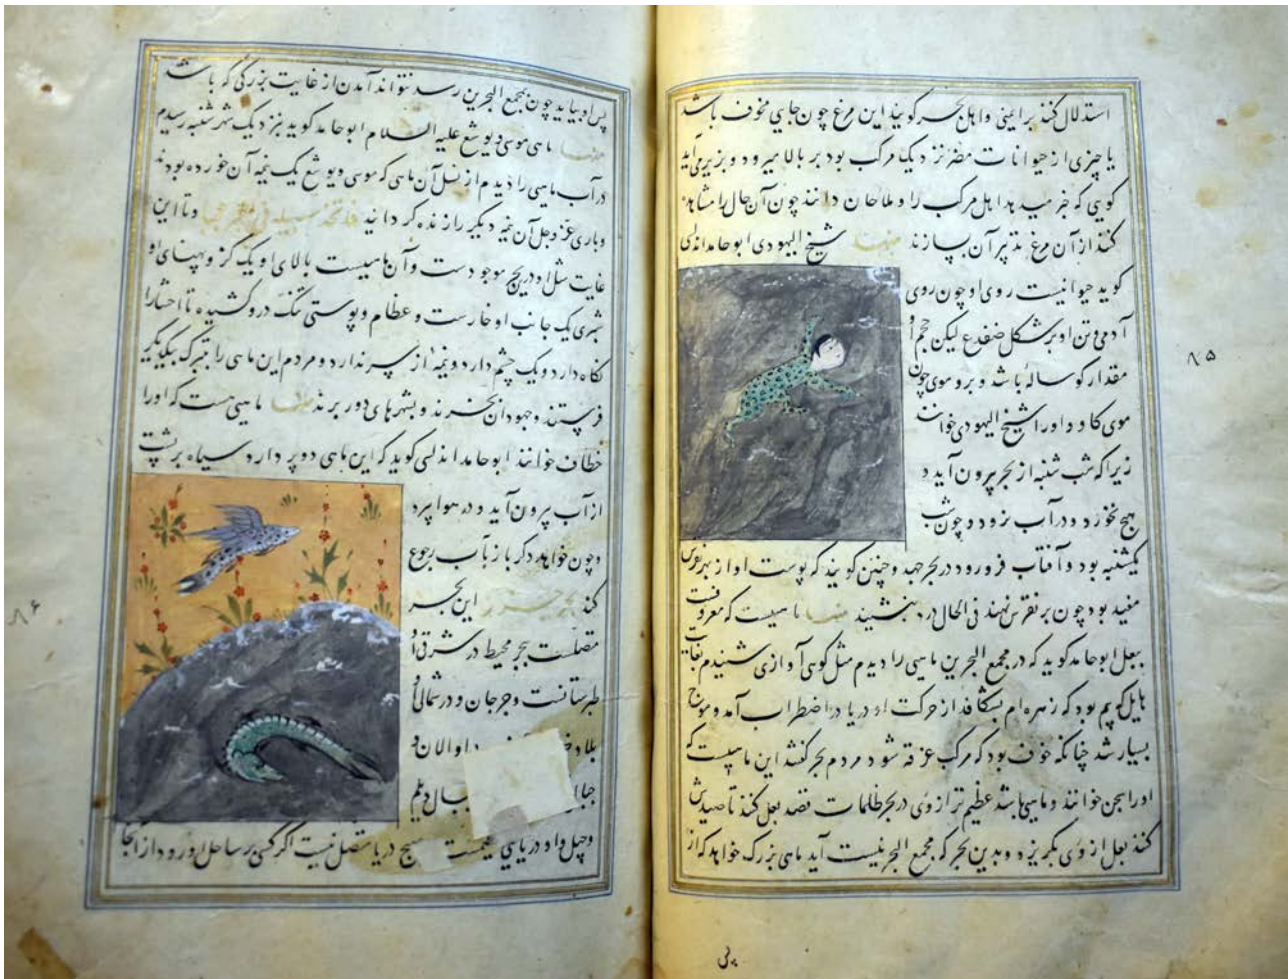 استدلال کند بر ایمنی و اهل بحر گویند این مرغ چون جایی مخوف باشد
یا چیزی از حیوانات مضر نزدیک مرکب بود بر بالا میرود و بزیر می آید
کویی که خبر میدهد اهل مرکب را و ملاحان دانند چون آن حال را مشاهده
کنند از آن مرغ تدبیر آن بسازند منها شیخ الیهودی ابو حامد اندلسی
کوید حیوانیست روی او چون روی
آدمی و تن او بر شکل ضفدع لیکن حجم او
مقدار کوساله باشد و برو موی چون
موی کاو و او را شیخ الیهودی خوانند
زیرا که شب شنبه از بحر بیرون آید و
هیچ نخورد و در آب نرود و چون شب
یکشنبه بود و آفتاب فرو رود در بحر جهد و چنین کویند که پوست او از بهر نقرس
مفید بود چون بر نقرس نهند فی الحال درد بنشیند منها ماهیست که معروفست
ببغل ابو حامد کوید که در مجمع البحرین ماهی را دیدم مثل کوهی آوازی شنیدم بغایت
هایل بیم بود که زهره ام بشکافد از حرکت او دریا در اضطراب آمد و موج
بسیار شد چنانکه خوف بود که مرکب غرقه شود مردم بحر گفتند این ماهیست که
او را بغل خوانند و ماهی باشد عظیم تر از وی در بحر ظلمات قصد بغل کند تا صیدش
کند بغل از وی بگریزد و بدین بحر که مجمع البحرینیست آید ماهی بزرک خواهد که از
پی
۸۵
پس او بیاید چون بمجمع البحرین رسد نتواند آمدن از غایت بزرکی که باشد
منها ماهی موسی و یوشع علیه السلام ابو حامد کوید بنزدیک شهر سبته رسیدم
در آب ماهی را دیدم از نسل آن ماهی که موسی و یوشع یک نیمه آن خورده بودند
و باری عز و جل آن نیمه دیکر را زنده کردانید فاتخذ سبیله فی البحر عجبا و تا این
غایت نسل او در بحر موجودست و آن ماهیست بالای او یک کز و پهنای او
شبری یک جانب او خارست و عظام و پوستی تنک درو کشیده تا احشا را
نکاه دارد و یک چشم دارد و نیمه از سر ندارد و مردم این ماهی را تبرک بیکدیکر
فرستند و جهودان بخرند و بشهرهای دور برند منها ماهیی هست که او را
خطاف خوانند ابو حامد اندلسی کوید که این ماهی دو پر دارد سیاه بر پشت
از آب بیرون آید و در هوا پرد
و چون خواهد دکر باز بآب رجوع
کند بحر خزر این بحر
متصلست ببحر محیط در شرقی او
طبرستانست و جرجان و در شمالی او
بلاد و الان و
جبال دیلم
و جیل و او دریایی عظیمست بهیچ دریا متصل نیست اکر کسی بر ساحل او رود از آنجا
۸۶